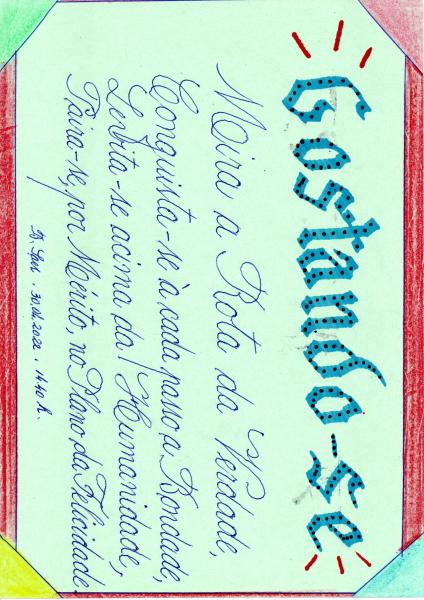 Gostando-se
Mira a Rota da Verdade,
Conquista-se à cada passo a Bondade,
Levita-se acima da! Humanidade,
Paira-se, por Mérito, no Plano da Felicidade.